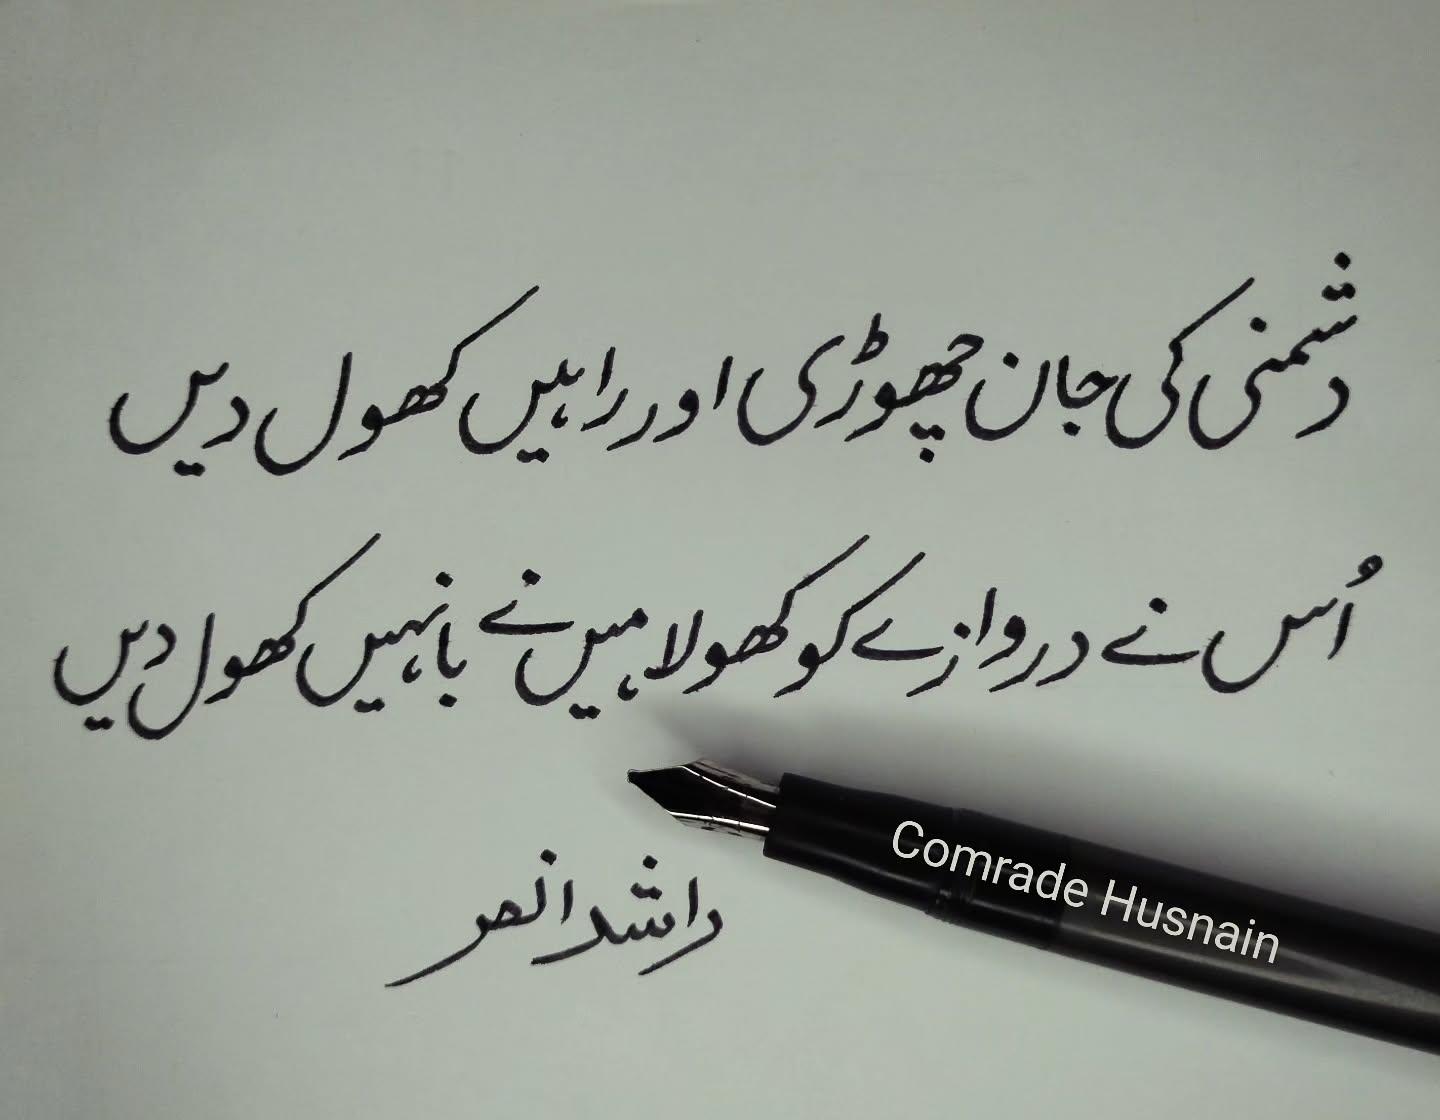 دشمنی کی جان چھوڑی اور راہیں کھول دیں
اُس نے دروازے کو کھولا میں نے بانہیں کھول دیں
راشد انصر
Comrade Husnain